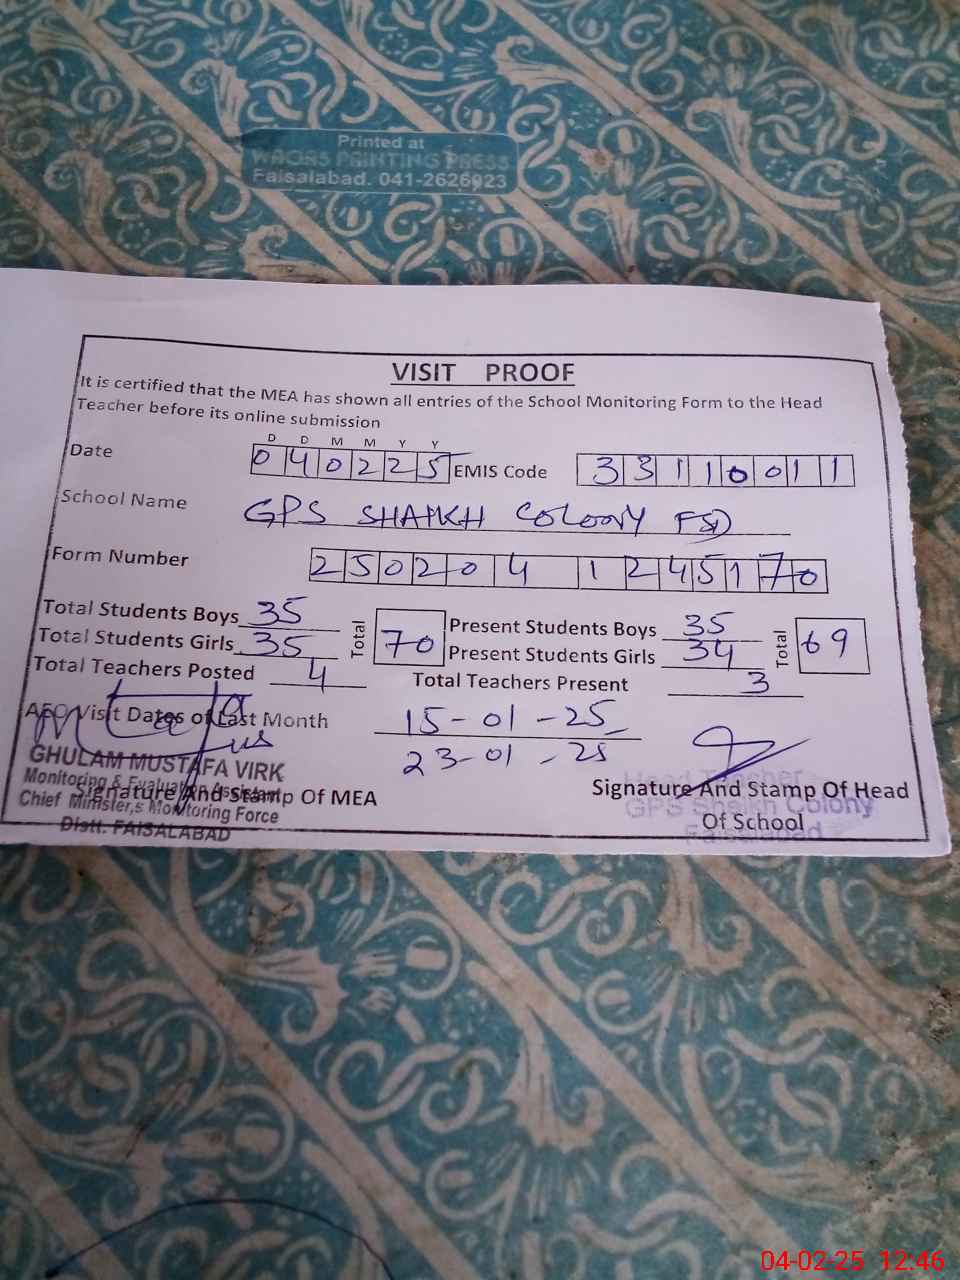 Printed at
WAQAS PRINTING PRESS
Faisalabad. 041-2626923
VISIT PROOF
It is certified that the MEA has shown all entries of the School Monitoring Form to the Head
Teacher before its online submission
D D M M Y Y
Date 040225 EMIS Code 33110011
School Name GPS SHAIKH COLONY FSD
Form Number 2502041245170
Total Students Boys 35 Total 70 Present Students Boys 35 Total 69
Total Students Girls 35 Present Students Girls 34
Total Teachers Posted 4 Total Teachers Present 3
AEO Visit Dates of Last Month 15-01-25
23-01-25
GHULAM MUSTAFA VIRK
Monitoring & Evaluation Assistant
Chief Minister,s Monitoring Force
Distt. FAISALABAD
Signature And Stamp Of MEA
Signature And Stamp Of Head
Of School
Head Teacher
GPS Sheikh Colony
Faisalabad
04-02-25 12:46